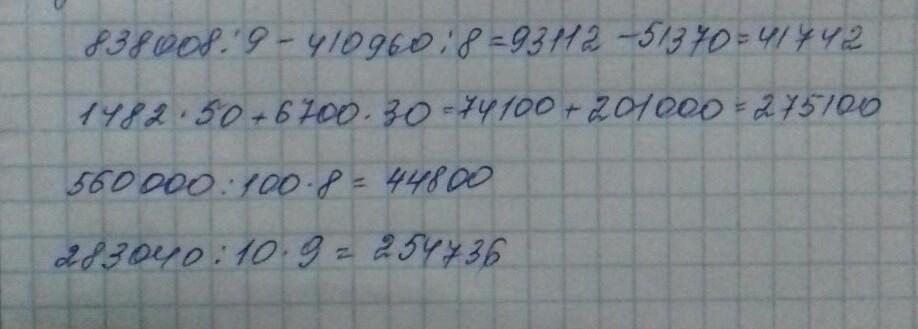 838008:9-410960:8=93112-51370=41742
1482·50+6700·30=74100+201000=275100
560000:100·8=44800
283040:10·9=254736